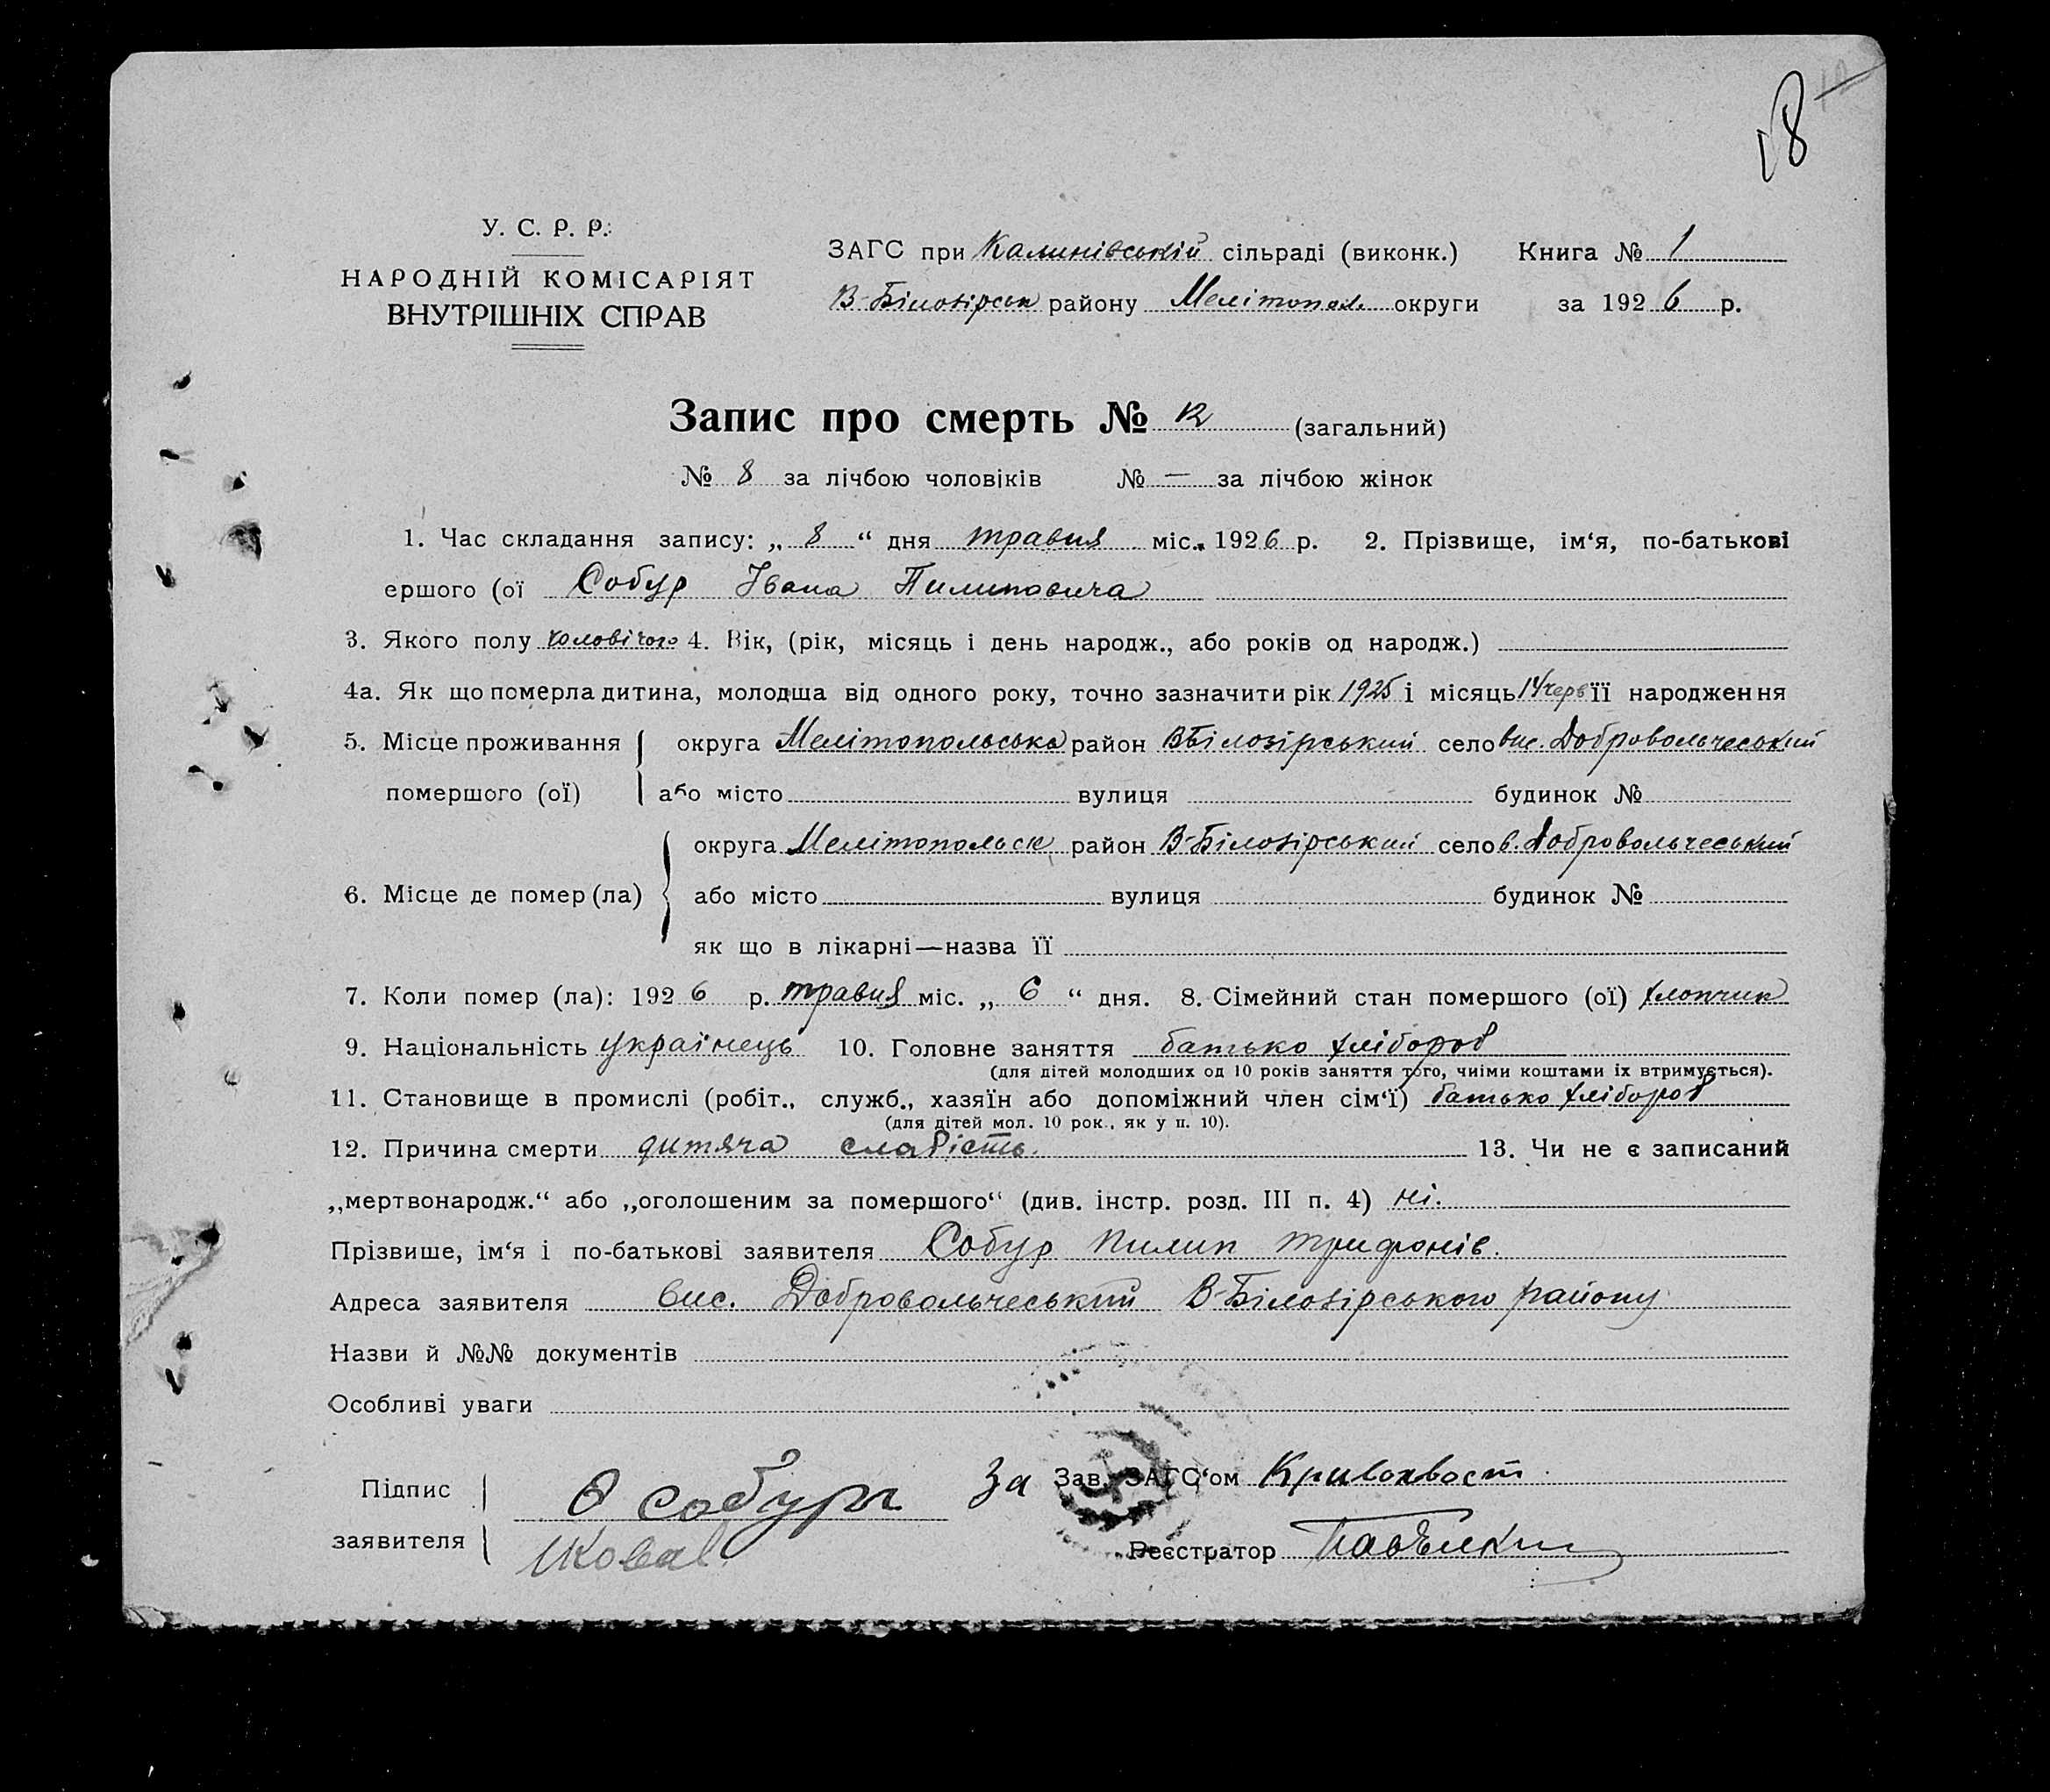 18
У. С. Р. Р.
НАРОДНІЙ КОМІСАРІЯТ
ВНУТРІШНІХ СПРАВ
ЗАГС при Калинівській сільраді (виконк.) Книга № 1
В-Білозірськ району Мелітопол округи за 1926 р.
Запис про смерть № 12 (загальний)
№ 8 за лічбою чоловіків № — за лічбою жінок
1. Час складання запису: „ 8 “ дня травня міс. 1926 р. 2. Прізвище, ім‘я, по-батькові
ершого (ої Собур Івана Пилиповича
3. Якого полу чоловічого 4. Вік, (рік, місяць і день народж., або років од народж.)
4а. Як що померла дитина, молодша від одного року, точно зазначити рік 1925 і місяць 14 черв її народження
5. Місце проживання округа Мелітопольська район ВБілозірський село вис. Добровольчеський
помершого (ої) або місто вулиця будинок №
округа Мелітопольск район В-Білозірський село в. Добровольчеський
6. Місце де помер (ла) або місто вулиця будинок №
як що в лікарні—назва її
7. Коли помер (ла): 1926 р. травня міс. „ 6 “ дня. 8. Сімейний стан помершого (ої) хлопчик
9. Національність українець 10. Головне заняття батько хлібороб
(для дітей молодших од 10 років заняття того, чиїми коштами їх втримується).
11. Становище в промислі (робіт., служб., хазяїн або допоміжний член сім‘ї) батько хлібороб
(для дітей мол. 10 рок., як у п. 10).
12. Причина смерти дитяча слабість. 13. Чи не є записаний
„мертвонародж.“ або „оголошеним за помершого“ (див. інстр. розд. III п. 4) ні.
Прізвише, ім‘я і по-батькові заявителя Собур Пилип Трифонів.
Адреса заявителя вис. Добровольчеський В-Білозірського району
Назви й №№ документів
Особливі уваги
Підпис заявителя Ѳ Собурь
За Зав. ЗАГС‘ом Кривохвост
Реєстратор